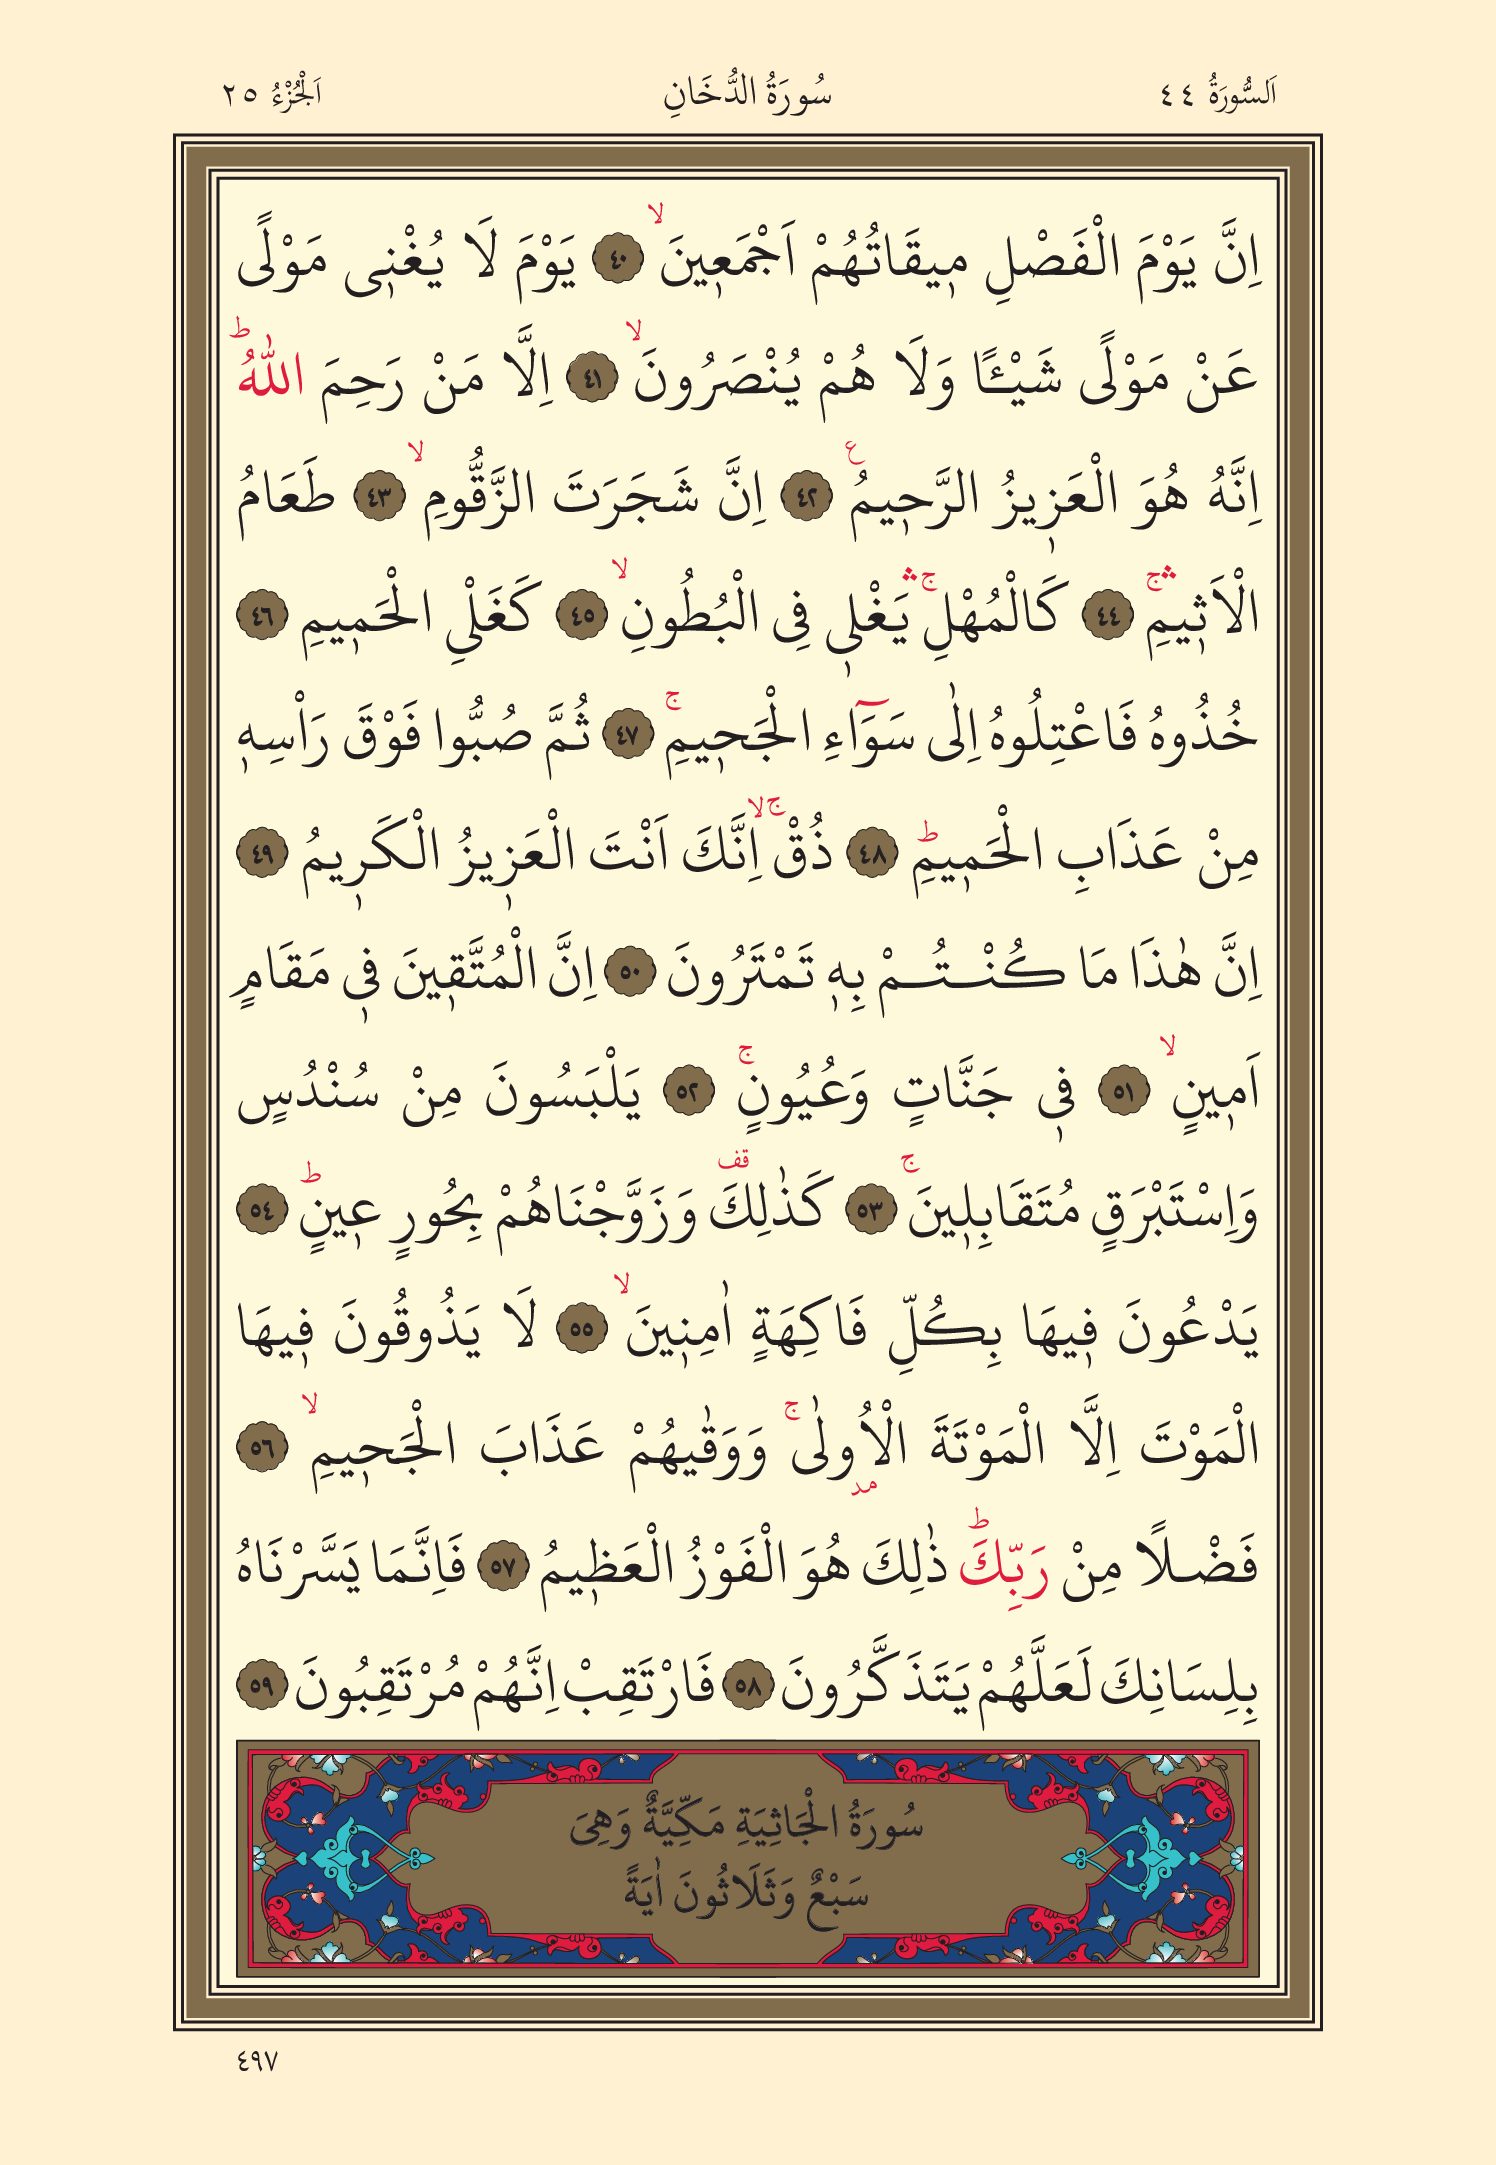 اَلسُّورَةُ ٤٤ سُورَةُ الدُّخَانِ اَلْجُزْءُ ٢٥
اِنَّ يَوْمَ الْفَصْلِ م۪يقَاتُهُمْ اَجْمَع۪ينَۙ ﴿٤٠﴾ يَوْمَ لَا يُغْن۪ى مَوْلًى
عَنْ مَوْلًى شَيْـًٔا وَلَا هُمْ يُنْصَرُونَۙ ﴿٤١﴾ اِلَّا مَنْ رَحِمَ اللّٰهُۜ
اِنَّهُ هُوَ الْعَز۪يزُ الرَّح۪يمُ۟ ﴿٤٢﴾ اِنَّ شَجَرَتَ الزَّقُّومِۙ ﴿٤٣﴾ طَعَامُ
الْاَث۪يمِۚۛ ﴿٤٤﴾ كَالْمُهْلِۚۛ يَغْل۪ى فِى الْبُطُونِۙ ﴿٤٥﴾ كَغَلْىِ الْحَم۪يمِ ﴿٤٦﴾
خُذُوهُ فَاعْتِلُوهُ اِلٰى سَوَٓاءِ الْجَح۪يمِۚ ﴿٤٧﴾ ثُمَّ صُبُّوا فَوْقَ رَاْسِه۪
مِنْ عَذَابِ الْحَم۪يمِۜ ﴿٤٨﴾ ذُقْۚۙ اِنَّكَ اَنْتَ الْعَز۪يزُ الْكَر۪يمُ ﴿٤٩﴾
اِنَّ هٰذَا مَا كُنْـتُـمْ بِه۪ تَمْتَرُونَ ﴿٥٠﴾ اِنَّ الْمُتَّق۪ينَ ف۪ى مَقَامٍ
اَم۪ينٍۙ ﴿٥١﴾ ف۪ى جَنَّاتٍ وَعُيُونٍۚ ﴿٥٢﴾ يَلْبَسُونَ مِنْ سُنْدُسٍ
وَاِسْتَبْرَقٍ مُتَقَابِل۪ينَۚ ﴿٥٣﴾ كَذٰلِكَ قف وَزَوَّجْنَاهُمْ بِحُورٍ ع۪ينٍۜ ﴿٥٤﴾
يَدْعُونَ ف۪يهَا بِكُلِّ فَاكِهَةٍ اٰمِن۪ينَۙ ﴿٥٥﴾ لَا يَذُوقُونَ ف۪يهَا
الْمَوْتَ اِلَّا الْمَوْتَةَ الْاُو۫لٰىۚ وَوَقٰيهُمْ عَذَابَ الْجَح۪يمِۙ ﴿٥٦﴾
فَضْـلًا مِنْ رَبِّكَۜ ذٰلِكَ هُوَ الْفَوْزُ الْعَظ۪يمُ ﴿٥٧﴾ فَاِنَّمَا يَسَّرْنَاهُ
بِلِسَانِكَ لَعَلَّهُمْ يَتَذَكَّرُونَ ﴿٥٨﴾ فَارْتَقِبْ اِنَّهُمْ مُرْتَقِبُونَ ﴿٥٩﴾
سُورَةُ الْجَاثِيَةِ مَكِّيَّةٌ وَهِىَ
سَبْعٌ وَثَلَاثُونَ اٰيَةً
٤٩٧